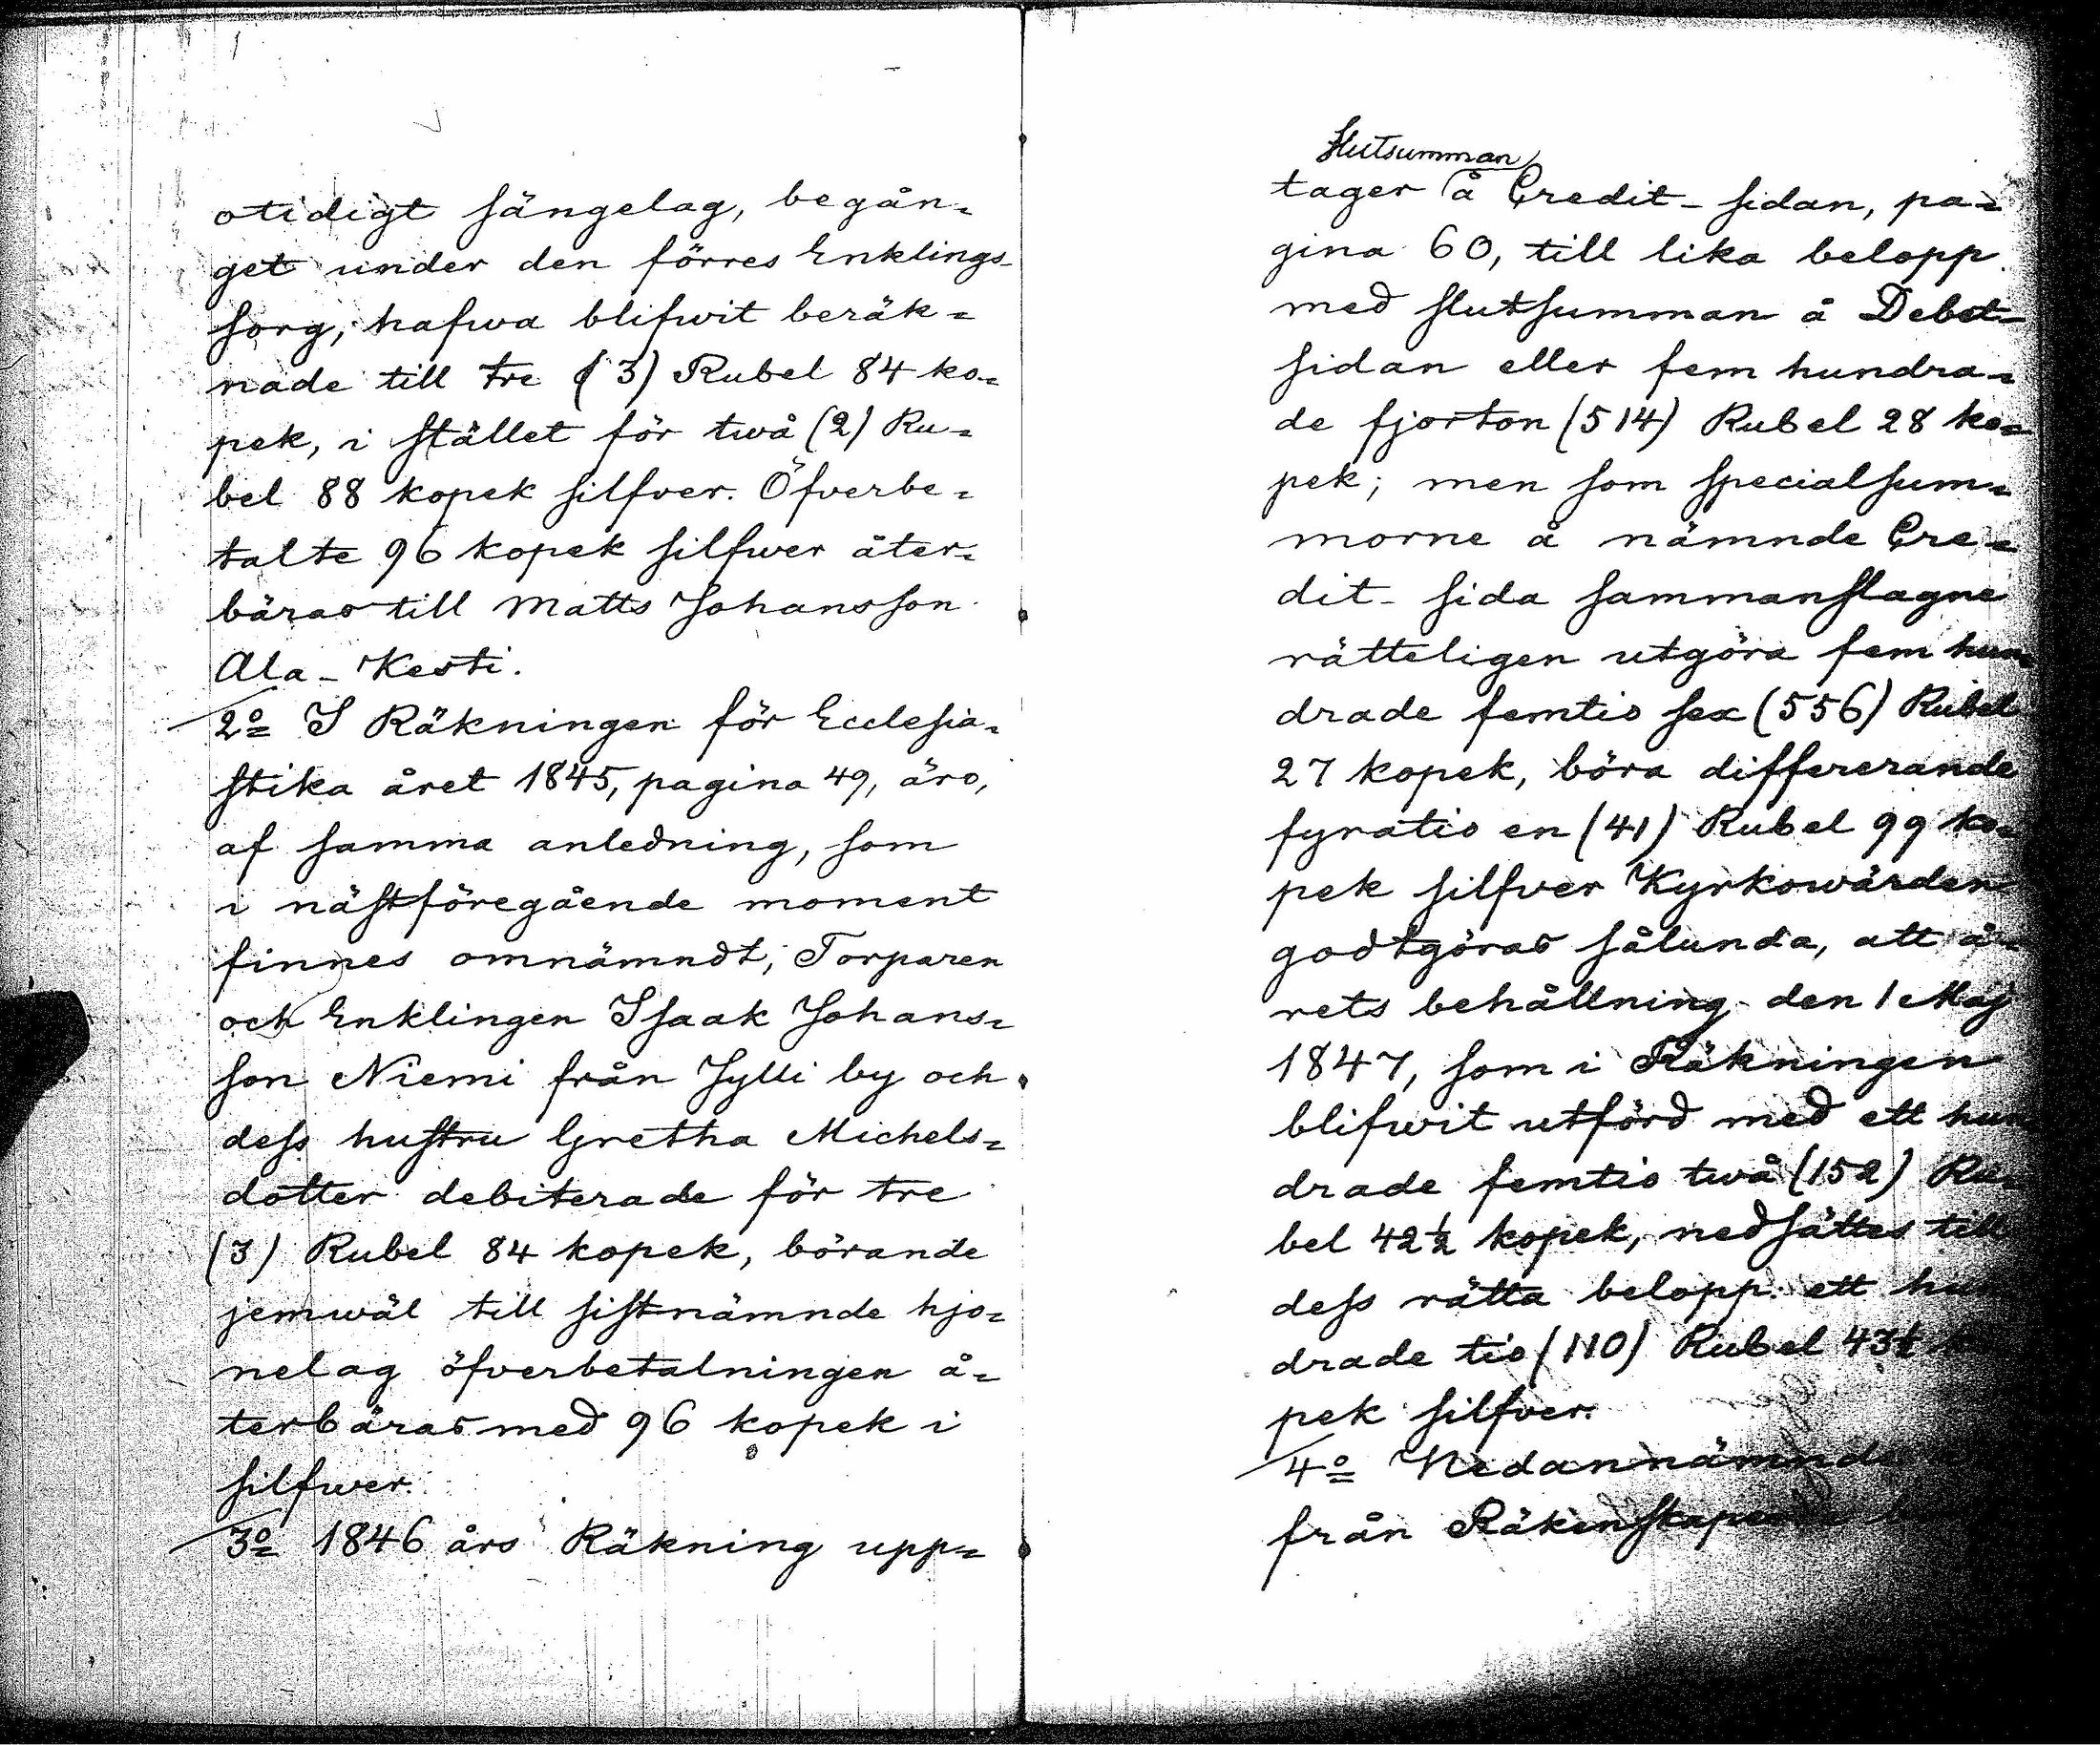 otidigt sängelag, begån=
get under den förres Enklings-
sorg, hafwa blifwit beräk=
nade till tre (3) Rubel 84 ko=
pek, i stället för twå (2) Ru=
bel 88 kopek silfver. Öfverbe=
talte 96 kopek silfwer åter=
bäras till Matts Johansson
Ala-Kesti.
2º I Räkningen för Ecclesia=
stika året 1845, pagina 49, äro,
af samma anledning, som
i nästföregående moment
finnes omnämndt, Torparen
och Enklingen Isaak Johans=
son Niemi från Jylli by och
dess hustru Gretha Michels=
dotter debiterade för tre
(3) Rubel 84 kopek, börande
jemwäl till sistnämnde hjo=
nelag öfverbetalningen å=
terbäras med 96 kopek i
silfwer.
3º 1846 års Räkning upp=
Slutsumman
tager å Credit-sidan, pa=
gina 60, till lika belopp
med slutsumman å Debet-
sidan eller fem hundra=
de fjorton (514) Rubel 28 ko=
pek; men som specialsum=
morne å nämnde Cre=
dit-sida sammanslagne
rätteligen utgöra fem hun=
drade femtio sex (556) Rubel
27 kopek, böra differerande
fyratio en (41) Rubel 99 ko=
pek silfver Kyrkowärden
godtgöras sålunda, att å=
rets behållning den 1 Maj
1847, som i Räkningen
blifwit utförd med ett hun
drade femtio twå (152) Ru=
bel 42½ kopek, nedsättes till
dess rätta belopp ett hun
drade tio (110) Rubel 43½
pek silfver.
4º Nedannämnde
från